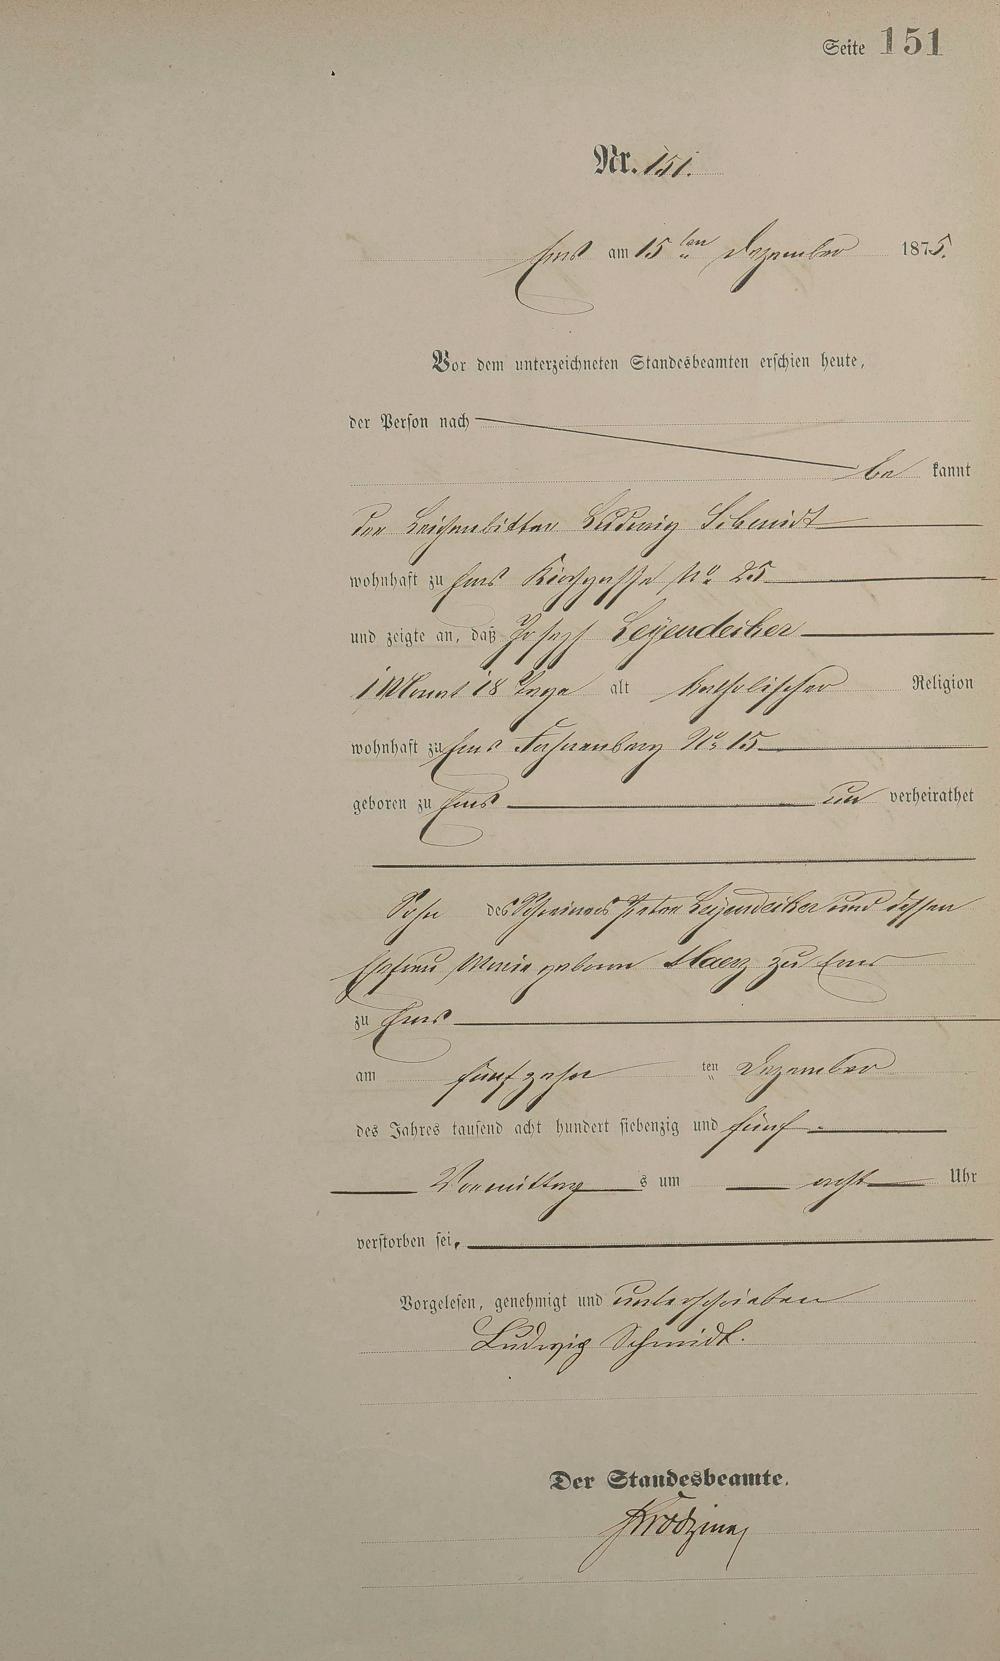 Seite 151
Nr. 151.
Ems am 15 ten Dezember 1875.
Vor dem unterzeichneten Standesbeamten erschien heute,
der Person nach
be kannt
der Leichenbitter Ludwig Schmidt
wohnhaft zu Ems Kirchgasse No 25
und zeigte an, daß Joseph Leyendecker
1 Monat 18 Tage alt katholischer Religion
wohnhaft zu Ems No 15
geboren zu Ems un verheirathet
Sohn des Schreiners Peter Leyendecker und dessen
Ehefrau Maria geborne zu Ems
zu Ems
am fünfzehn ten Dezember
des Jahres tausend acht hundert siebenzig und fünf
Vormittag s um acht Uhr
verstorben sei.
Vorgelesen, genehmigt und unterschrieben
Ludwig Schmidt.
Der Standesbeamte.